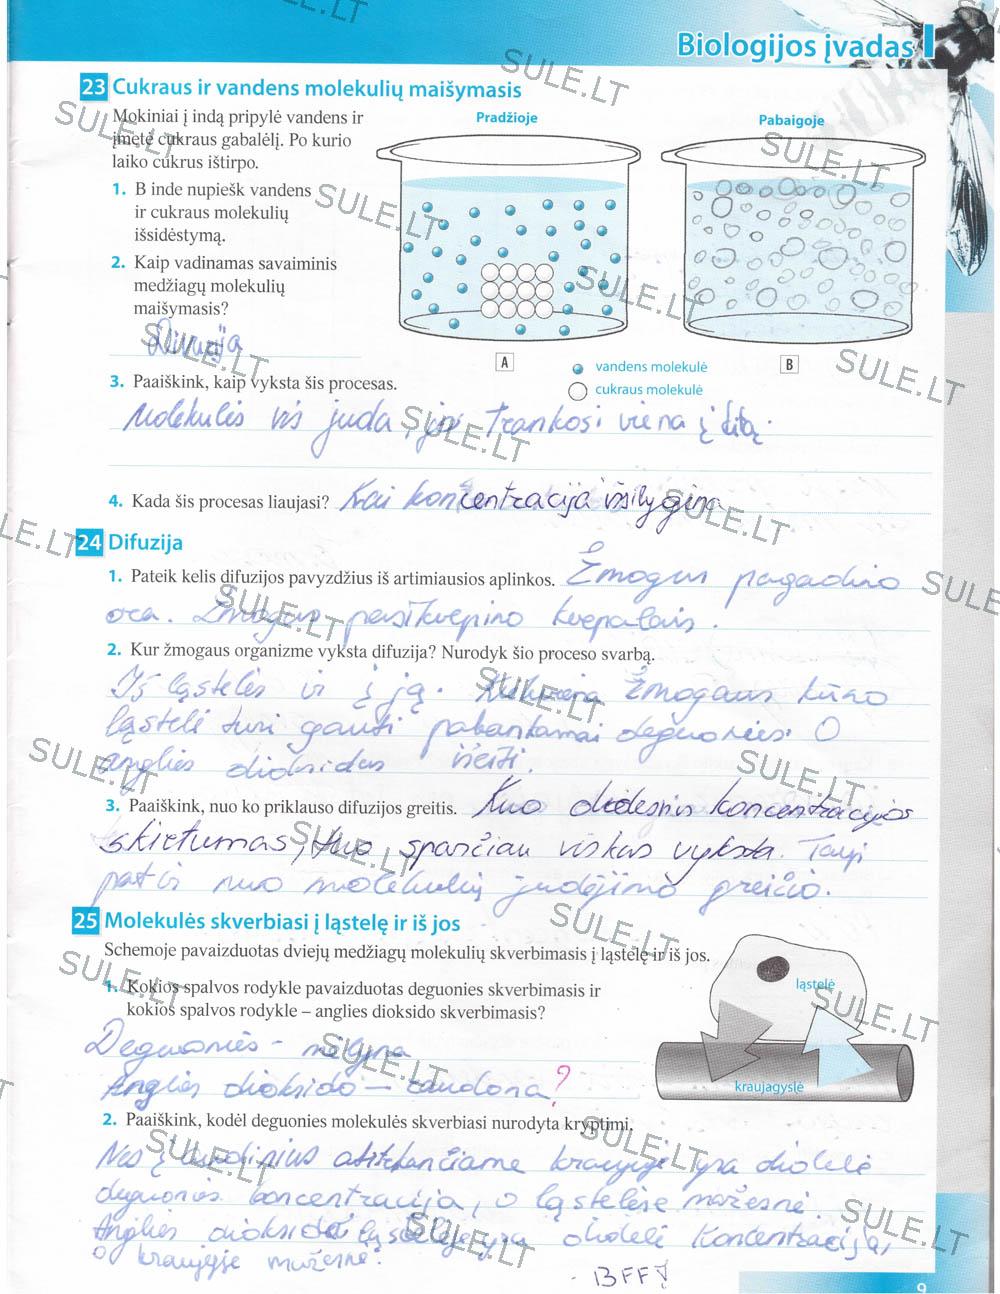 Biologijos įvadas I
23 Cukraus ir vandens molekulių maišymasis
Mokiniai į indą pripylė vandens ir
įmetė cukraus gabalėlį. Po kurio
laiko cukrus ištirpo.
1. B inde nupiešk vandens
ir cukraus molekulių
išsidėstymą.
2. Kaip vadinamas savaiminis
medžiagų molekulių
maišymasis?
Pradžioje
Pabaigoje
A
B
vandens molekulė
cukraus molekulė
3. Paaiškink, kaip vyksta šis procesas.
Molekulės vis juda, jos trankosi viena į kitą.
4. Kada šis procesas liaujasi? Kai koncentracija išsilygina
24 Difuzija
1. Pateik kelis difuzijos pavyzdžius iš artimiausios aplinkos. Žmogus pagadino
orą. Žmogus pasikvepino kvepalais.
2. Kur žmogaus organizme vyksta difuzija? Nurodyk šio proceso svarbą.
Iš ląstelės ir į ją. Kiekviena žmogaus kūno
ląstelė turi gauti pakankamai deguonies. O
anglies dioksidas išeiti.
3. Paaiškink, nuo ko priklauso difuzijos greitis. Kuo didesnis koncentracijos
skirtumas, tuo sparčiau viskas vyksta. Taip
pat ir nuo molekulių judėjimo greičio.
25 Molekulės skverbiasi į ląstelę ir iš jos
Schemoje pavaizduotas dviejų medžiagų molekulių skverbimasis į ląstelę ir iš jos.
1. Kokios spalvos rodykle pavaizduotas deguonies skverbimasis ir
kokios spalvos rodykle – anglies dioksido skverbimasis?
Deguonies – mėlyna
Anglies dioksido – raudona ?
ląstelė
kraujagyslė
2. Paaiškink, kodėl deguonies molekulės skverbiasi nurodyta kryptimi.
Nes į audinius atitekančiame kraujyje yra didelė
deguonies koncentracija, o ląstelėse mažesnė.
Anglies dioksido ląstelėje yra didelė koncentracija,
o kraujyje mažesnė.
BFF!
9
SULE.LT